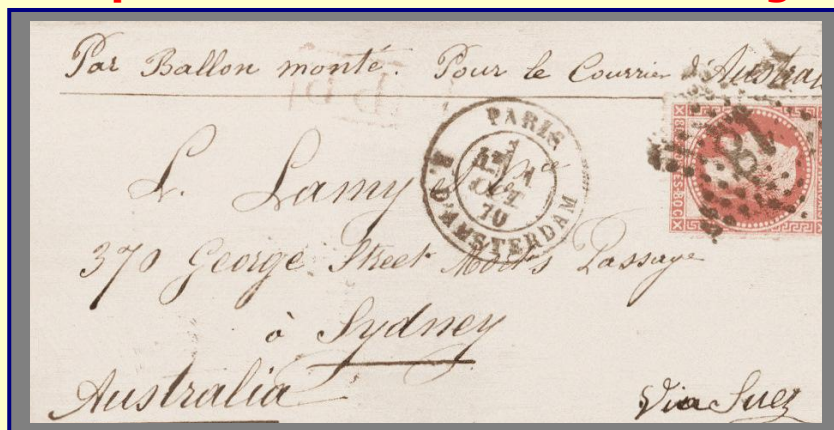 Par Ballon monté. Pour le Courrier d'Austra
PARIS
1
OCT
70
R. D'AMSTERDAM
18
L. Lamy et Cie
370 George Street Mort's Passage
à Sydney
Australia
Via Suez